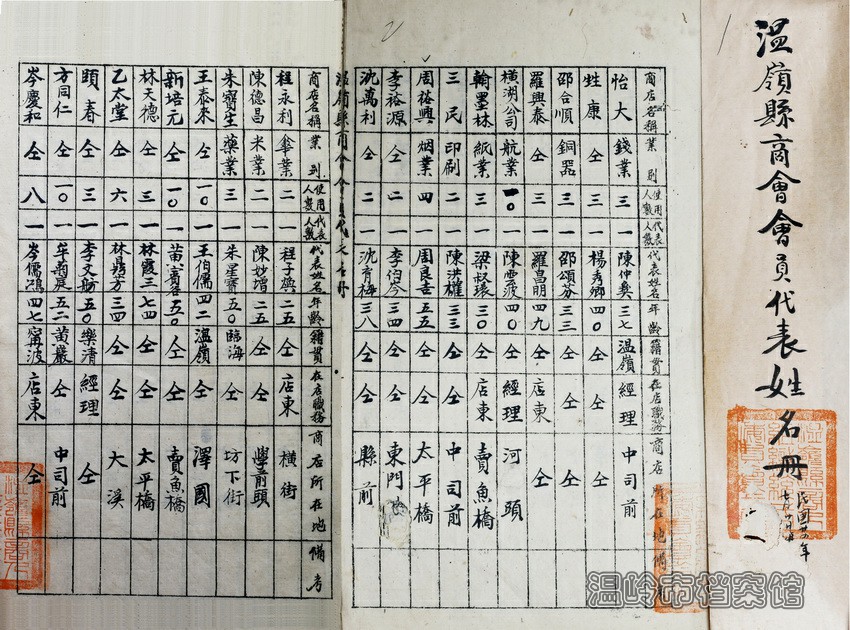 溫嶺縣商會會員代表姓名冊
民國廿年
商店名稱 業別 使用人數 代表人數 代表姓名 年齡 籍貫 在店職務 商店所在地 備考
怡大 錢業 三 一 陳仲奥 三七 溫嶺 經理 中司前
甡康 仝 三 一 楊秀鄉 四〇 仝 仝 仝
邵合順 銅器 三 一 邵頌芬 三三 仝 仝 仝
羅興泰 仝 三 一 羅昌明 四九 仝 店東 仝
橫湖公司 航業 一〇 一 陳雲波 四〇 仝 經理 河頭
翰墨林 紙業 三 一 梁叔瓌 三〇 仝 店東 賣魚橋
三民 印刷 二 一 陳洪權 三三 仝 仝 中司前
周萃興 烟業 四 一 周良吉 五五 仝 仝 太平橋
李裕源 仝 二 一 李伯岑 三四 仝 仝 東門
沈萬利 仝 二 一 沈育梅 三八 仝 仝 縣前
溫嶺縣商會會員代表名冊
商店名稱 業別 使用人數 代表人數 代表姓名 年齡 籍貫 在店職務 商店所在地 備考
程永利 傘業 二 一 程子興 二五 仝 店東 橫街
陳德昌 米業 二 一 陳妙增 二五 仝 仝 學前頭
朱寶生 藥業 三 一 朱星齋 五〇 臨海 仝 坊下街
王泰來 仝 一〇 一 王伯儒 四二 溫嶺 仝 澤國
新培元 仝 一〇 一 苗 五〇 仝 仝 賣魚橋
林天德 仝 三 一 林霞三 七四 仝 仝 太平橋
乙太堂 仝 六 一 林 方 三四 仝 仝 大溪
頤春 仝 三 一 李文 五〇 樂清 經理 仝
方同仁 仝 一〇 一 牟菊庭 五二 黃巖 仝 中司前
岑慶和 仝 八 一 岑儒鴻 四七 寗波 店東 仝
温岭市档案馆